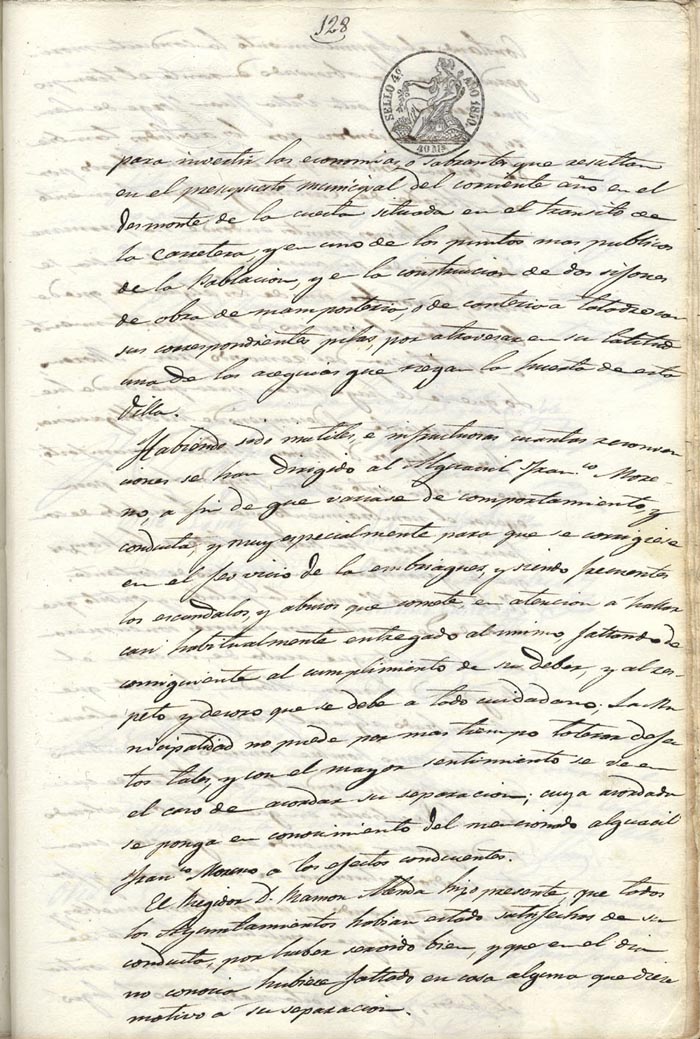 128
SELLO 4º AÑO 1850.
40 Ms
para invertir las economias, o sobrantes que resultan
en el presupuesto municipal del corriente año en el
desmonte de la cuesta situada en el transito de
la carretera, y en uno de los puntos mas publicos
de la Poblacion, y e la construccion de dos sifones
de obra de mamposteria, ó de
sus correspondientes pilas, por atravesar en su latitud
una de las acequias que riegan la huerta de esta
Villa.
Habiendo sido inutiles, e infructuosas cuantas reconven
ciones se han dirigido al Alguacil Fran.co More-
no, a fin de que variase de comportamiento, y
conducta, y muy especialmente para que se corrigiese
en el feo vicio de la embriaguez, y siendo frecuentes
los escandalos, y abusos que comete, en atencion a hallar
casi habitualmente entregado al mismo, faltando de
consiguiente al cumplimiento de su deber, y al res-
peto y decoro que se debe a todo ciudadano; La Mu
nicipalidad no puede por mas tiempo tolerar defec
tos tales, y con el mayor sentimiento se ve en
el caso de acordar su separacion; cuya acordada
se ponga en conocimiento del mencionado alguacil
Fran.co Moreno a los efectos conducentes.
El Regidor D. Ramon hizo presente, que todos
los Ayuntamientos habian estado satisfechos de su
conducta, por haber servido bien, y que en el dia
no conocia hubiese faltado en cosa alguna que diese
motivo a su separacion.